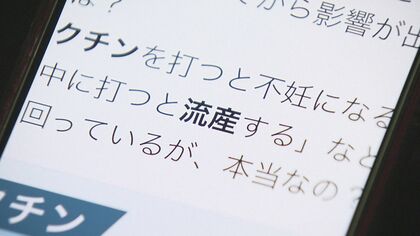 は？
から影響が出
クチンを打つと不妊になる
中に打つと流産する」など
回っているが、本当なの？
クチン